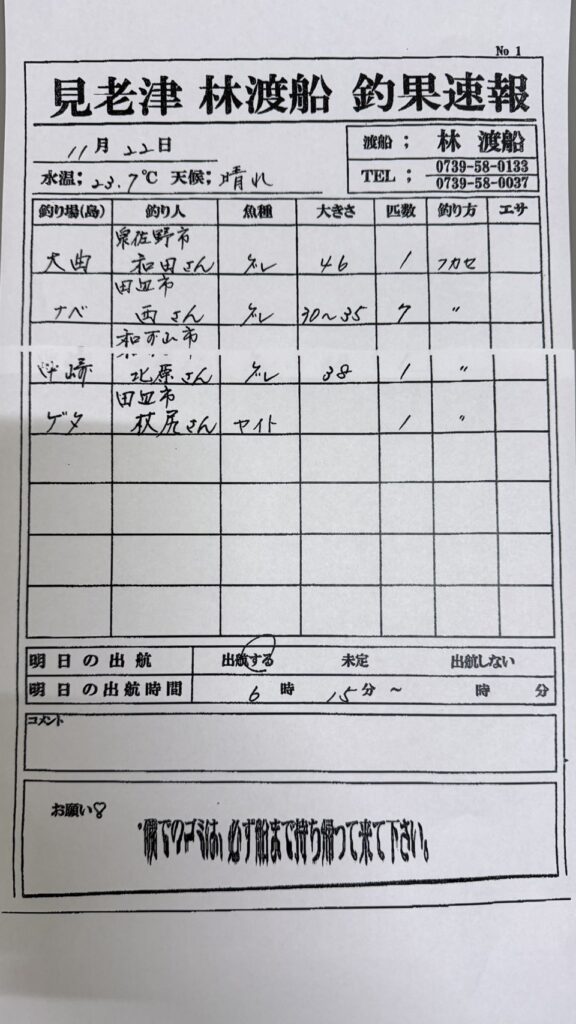 No 1
見老津 林渡船 釣果速報
11月 22日
水温; 23.7℃ 天候; 晴れ
渡船 ; 林 渡船
TEL ; 0739-58-0133
0739-58-0037
釣り場(島) 釣り人 魚種 大きさ 匹数 釣り方 エサ
泉佐野市
大曲 和田さん グレ 46 1 フカセ
田辺市
ナベ 西さん グレ 30～35 7 〃
和歌山市
崎 北原さん グレ 38 1 〃
田辺市
ゲタ 枝尻さん ヤイト 1 〃
明日の出航 出航する 未定 出航しない
明日の出航時間 6時 15分 ～ 時 分
コメント
お願い♡
磯でのゴミは、必ず船まで持ち帰って来て下さい。